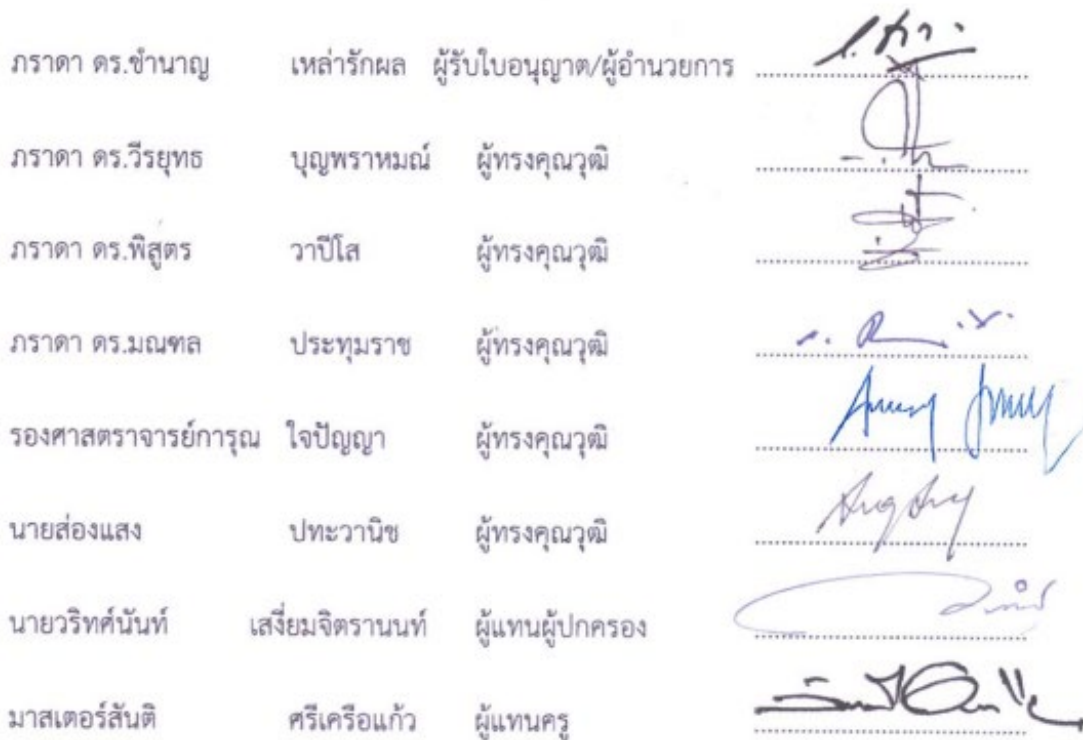 ภราดา ดร.ชำนาญ เหล่ารักผล ผู้รับใบอนุญาต/ผู้อำนวยการ
ภราดา ดร.วีรยุทธ บุญพราหมณ์ ผู้ทรงคุณวุฒิ
ภราดา ดร.พิสูตร วาปีโส ผู้ทรงคุณวุฒิ
ภราดา ดร.มณฑล ประทุมราช ผู้ทรงคุณวุฒิ
รองศาสตราจารย์การุณ ใจปัญญา ผู้ทรงคุณวุฒิ
นายส่องแสง ปทะวานิช ผู้ทรงคุณวุฒิ
นายวริทศ์นันท์ เสงี่ยมจิตรานนท์ ผู้แทนผู้ปกครอง
มาสเตอร์สันติ ศรีเครือแก้ว ผู้แทนครู